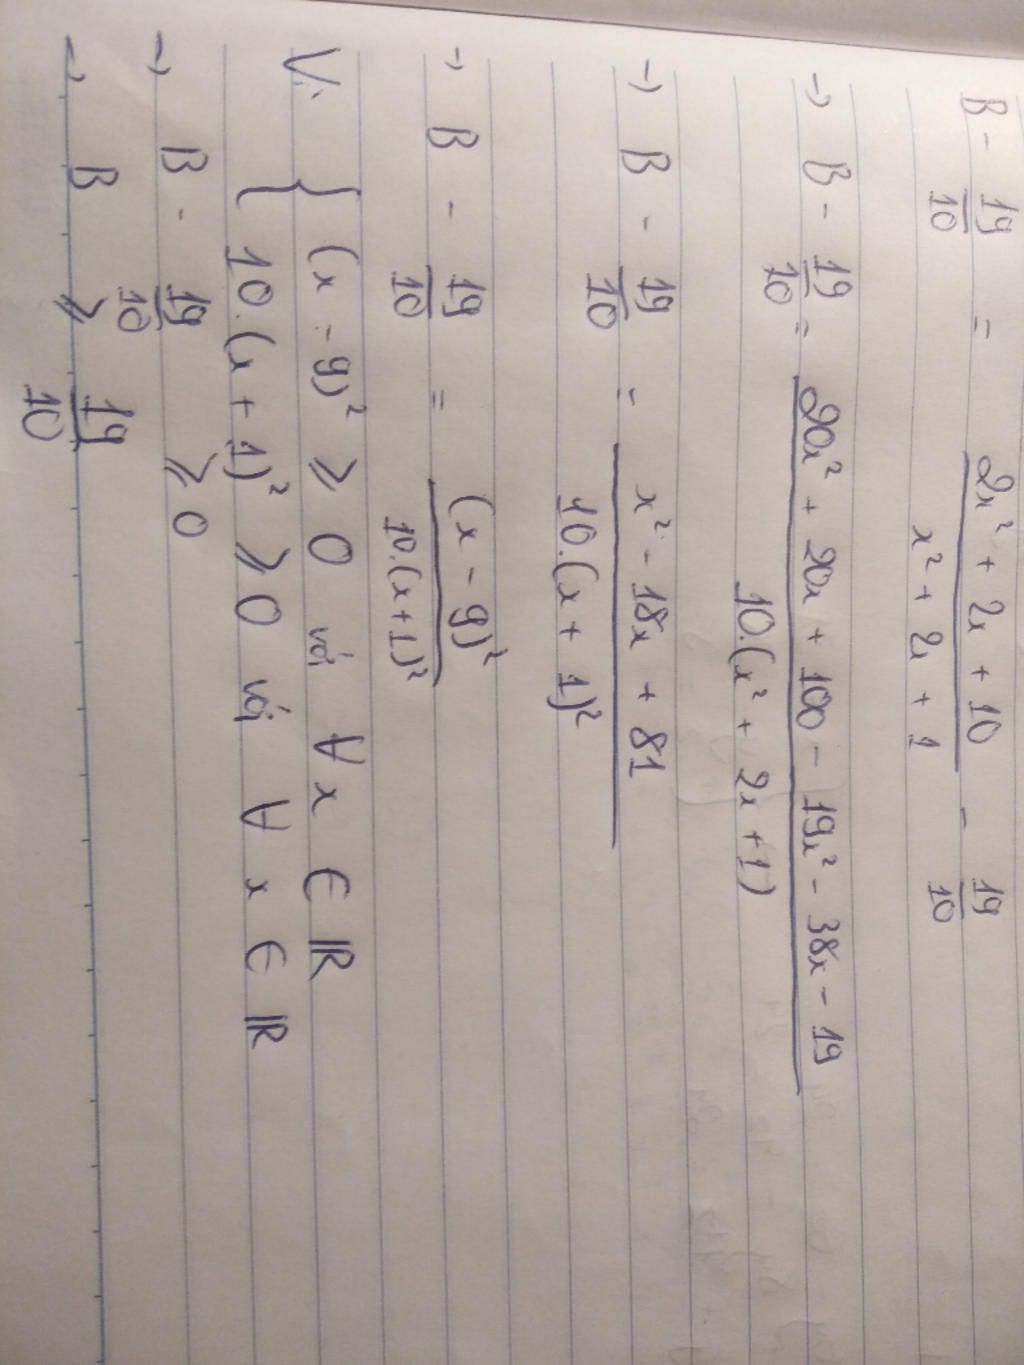 B - 19/10 = (2x² + 2x + 10)/(x² + 2x + 1) - 19/10
→ B - 19/10 = (20x² + 20x + 100 - 19x² - 38x - 19)/(10.(x² + 2x + 1))
→ B - 19/10 = (x² - 18x + 81)/(10.(x + 1)²)
→ B - 19/10 = (x - 9)²/(10.(x + 1)²)
Vì { (x - 9)² ⩾ 0 với ∀ x ∈ ℝ
10.(x + 1)² ⩾ 0 với ∀ x ∈ ℝ
→ B - 19/10 ⩾ 0
→ B ⩾ 19/10